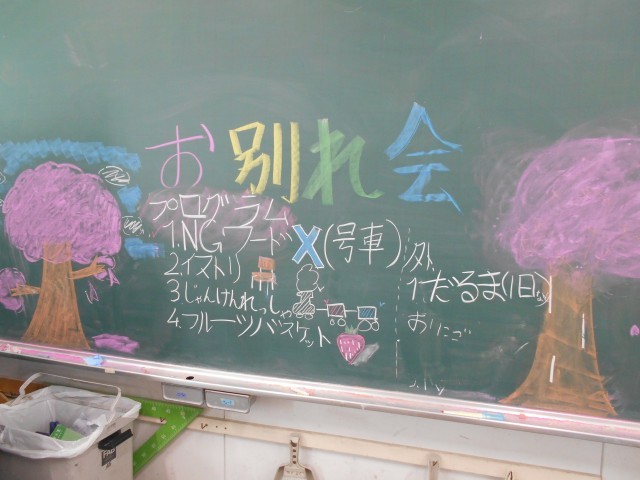 お別れ会
プログラム
1.NGワードX(号車)
2.イストリ
3.じゃんけんれっしゃ
4.フルーツバスケット
外
1.だるま(1日)
おにごっ